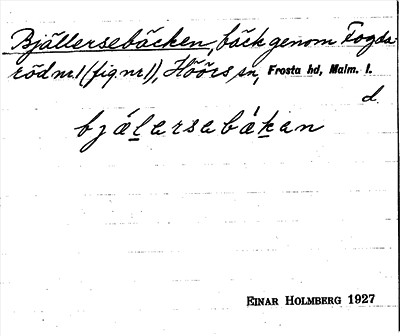 Bjällersebäcken, bäck genom Fogda-
röd nr 1 (fig. nr 1), Höörs sn, Frosta hd, Malm. l.
d.
bjälersabäkan
EINAR HOLMBERG 1927